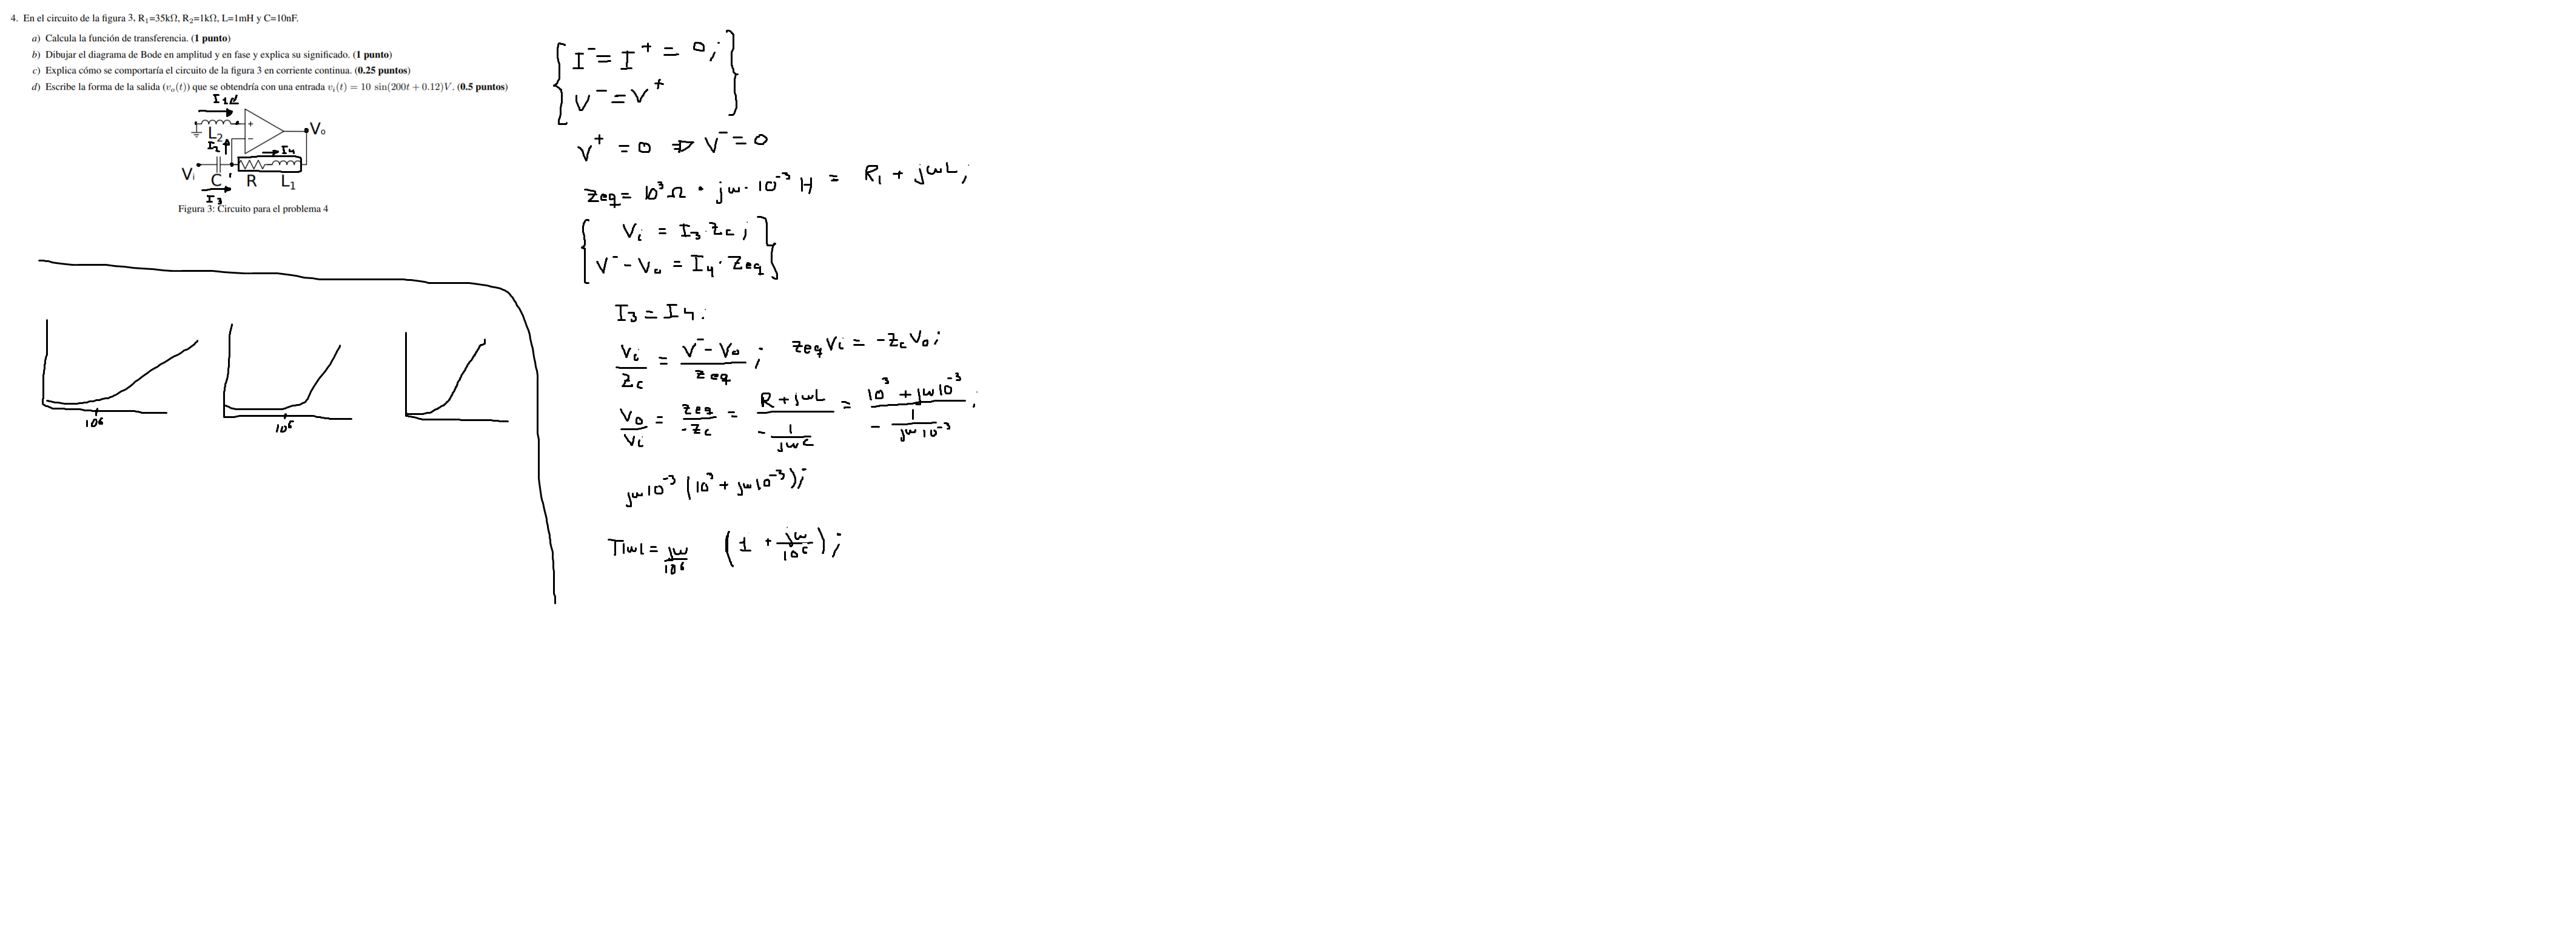 4. En el circuito de la figura 3, R₁=35kΩ, R₂=1kΩ, L=1mH y C=10nF.
a) Calcula la función de transferencia. (1 punto)
b) Dibujar el diagrama de Bode en amplitud y en fase y explica su significado. (1 punto)
c) Explica cómo se comportaría el circuito de la figura 3 en corriente continua. (0.25 puntos)
d) Escribe la forma de la salida (vₒ(t)) que se obtendría con una entrada vᵢ(t) = 10 sin(200t + 0.12)V. (0.5 puntos)
+
L₂
−
Vₒ
I₂
I₄
Vᵢ
C
R
L₁
I₃
Figura 3: Circuito para el problema 4
I⁻ = I⁺ = 0;
V⁻ = V⁺
V⁺ = 0 ⇒ V⁻ = 0
Zeq = 10³Ω · jω · 10⁻³ H = R₁ + jωL;
Vi = I₃ · Zc;
V⁻ - Vo = I₄ · Zeq
I₃ = I₄.
Vi/Zc = (V⁻ - Vo)/Zeq; Zeq Vi = -Zc Vo;
Vo/Vi = Zeq/-Zc = (R + jωL)/(- 1/jωC) = (10³ + jω10⁻³)/(- 1/jω10⁻³).
jω10⁻³ (10³ + jω10⁻³);
T|ω| = jω/10⁶ (1 + jω/10⁶);
10⁶
10⁶